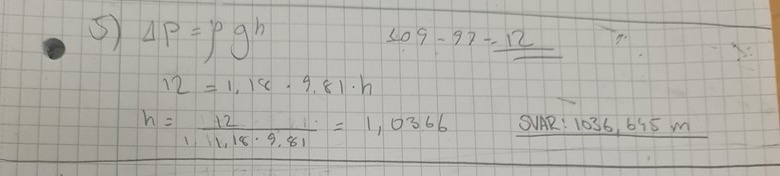 5) ΔP = ρ g h    109 - 97 = 12
12 = 1,18 · 9,81 · h
h = 12 / 1,18 · 9,81 = 1,0366    SVAR: 1036,645 m